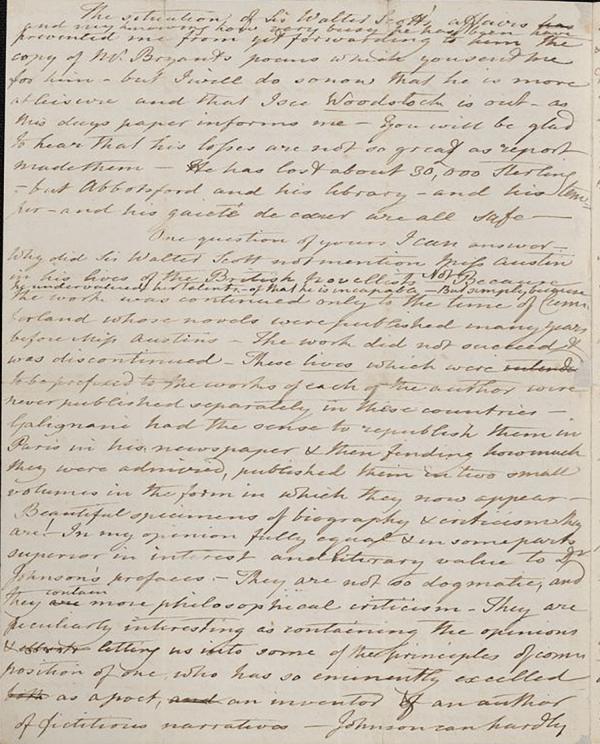 The situation of Sir Walter Scott's affairs has
and my knowing how very busy he has been have
prevented me from yet forwarding to him the
copy of Mr. Bryant's poems which you send me
for him – but I will do so now that he is more
at leisure and that I see Woodstock is out – as
this days paper informs me – You will be glad
to hear that his losses are not so great as report
made them – He has lost about 30,000 Sterling
– but Abbotsford and his library – and his
– and his gaieté de cœur are all safe –
One question of yours I can answer –
Why did Sir Walter Scott not mention Miss Austin
in his lives of the British Novelists – Not Because
he undervalued her talents of that he is incapable – But simply because
the work was continued only to the time of Cum-
berland whose novels were published many years
before Miss Austins – The work did not succeed &
was discontinued – These lives which were intended
to be prefixed to the works of each of the author were
never published separately in these countries –
Galignani had the sense to republish them in
Paris in his newspaper & then finding how much
they were admired, published them in two small
volumes in the form in which they now appear –
Beautiful specimens of biography & criticism they
are! In my opinion fully equal & in some parts
superior in interest and literary value to Dr
Johnson's prefaces – They are not so dogmatic, and
they are contain more philosophical criticism – They are
peculiarly interesting as containing the opinions
& letting us into some of the principles of com-
position of one who has so eminently excelled
both as a poet, and an inventor & an author
of fictitious narratives – Johnson can hardly